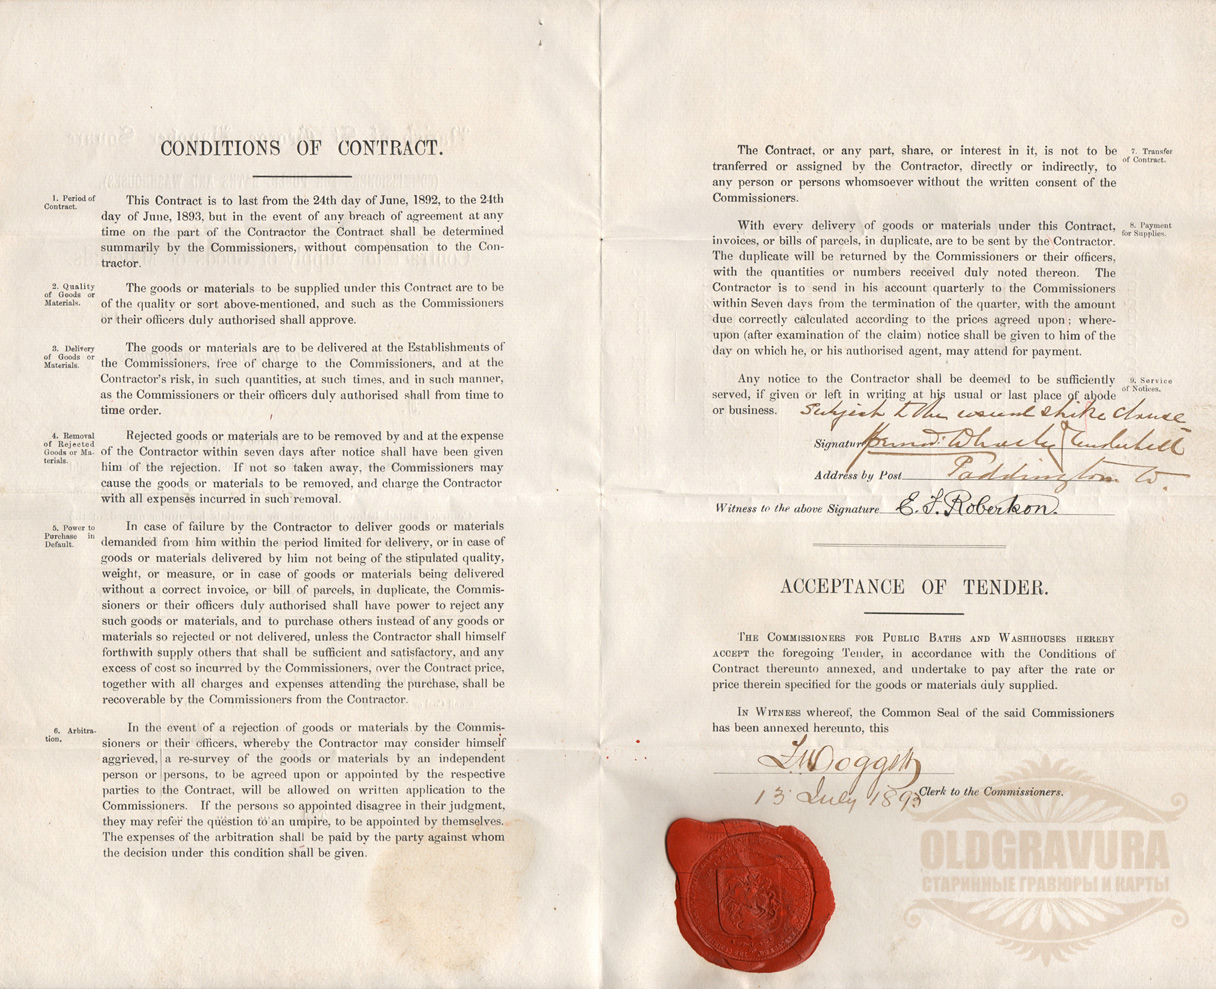 CONDITIONS OF CONTRACT.
1. Period of
Contract.
This Contract is to last from the 24th day of June, 1892, to the 24th
day of June, 1893, but in the event of any breach of agreement at any
time on the part of the Contractor the Contract shall be determined
summarily by the Commissioners, without compensation to the Con-
tractor.
2. Quality
of Goods or
Materials.
The goods or materials to be supplied under this Contract are to be
of the quality or sort above-mentioned, and such as the Commissioners
or their officers duly authorised shall approve.
3. Delivery
of Goods or
Materials.
The goods or materials are to be delivered at the Establishments of
the Commissioners, free of charge to the Commissioners, and at the
Contractor's risk, in such quantities, at such times, and in such manner,
as the Commissioners or their officers duly authorised shall from time to
time order.
4. Removal
of Rejected
Goods or Ma-
terials.
Rejected goods or materials are to be removed by and at the expense
of the Contractor within seven days after notice shall have been given
him of the rejection. If not so taken away, the Commissioners may
cause the goods or materials to be removed, and charge the Contractor
with all expenses incurred in such removal.
5. Power to
Purchase in
Default.
In case of failure by the Contractor to deliver goods or materials
demanded from him within the period limited for delivery, or in case of
goods or materials delivered by him not being of the stipulated quality,
weight, or measure, or in case of goods or materials being delivered
without a correct invoice, or bill of parcels, in duplicate, the Commis-
sioners or their officers duly authorised shall have power to reject any
such goods or materials, and to purchase others instead of any goods or
materials so rejected or not delivered, unless the Contractor shall himself
forthwith supply others that shall be sufficient and satisfactory, and any
excess of cost so incurred by the Commissioners, over the Contract price,
together with all charges and expenses attending the purchase, shall be
recoverable by the Commissioners from the Contractor.
6. Arbitra-
tion.
In the event of a rejection of goods or materials by the Commis-
sioners or their officers, whereby the Contractor may consider himself
aggrieved, a re-survey of the goods or materials by an independent
person or persons, to be agreed upon or appointed by the respective
parties to the Contract, will be allowed on written application to the
Commissioners. If the persons so appointed disagree in their judgment,
they may refer the question to an umpire, to be appointed by themselves.
The expenses of the arbitration shall be paid by the party against whom
the decision under this condition shall be given.
The Contract, or any part, share, or interest in it, is not to be
tranferred or assigned by the Contractor, directly or indirectly, to
any person or persons whomsoever without the written consent of the
Commissioners.
7. Transfer
of Contract.
With every delivery of goods or materials under this Contract,
invoices, or bills of parcels, in duplicate, are to be sent by the Contractor.
The duplicate will be returned by the Commissioners or their officers,
with the quantities or numbers received duly noted thereon. The
Contractor is to send in his account quarterly to the Commissioners
within Seven days from the termination of the quarter, with the amount
due correctly calculated according to the prices agreed upon; where-
upon (after examination of the claim) notice shall be given to him of the
day on which he, or his authorised agent, may attend for payment.
8. Payment
for Supplies.
Any notice to the Contractor shall be deemed to be sufficiently
served, if given or left in writing at his usual or last place of abode
or business.
9. Service
of Notices.
Subject to the usual strike clause
Signature
Address by Post Paddington W.
Witness to the above Signature E. F. Robertson.
ACCEPTANCE OF TENDER.
THE COMMISSIONERS FOR PUBLIC BATHS AND WASHHOUSES HEREBY
ACCEPT the foregoing Tender, in accordance with the Conditions of
Contract thereunto annexed, and undertake to pay after the rate or
price therein specified for the goods or materials duly supplied.
IN WITNESS whereof, the Common Seal of the said Commissioners
has been annexed hereunto, this
Doggett
13 July 1893 Clerk to the Commissioners.
OLDGRAVURA
СТАРИННЫЕ ГРАВЮРЫ И КАРТЫ